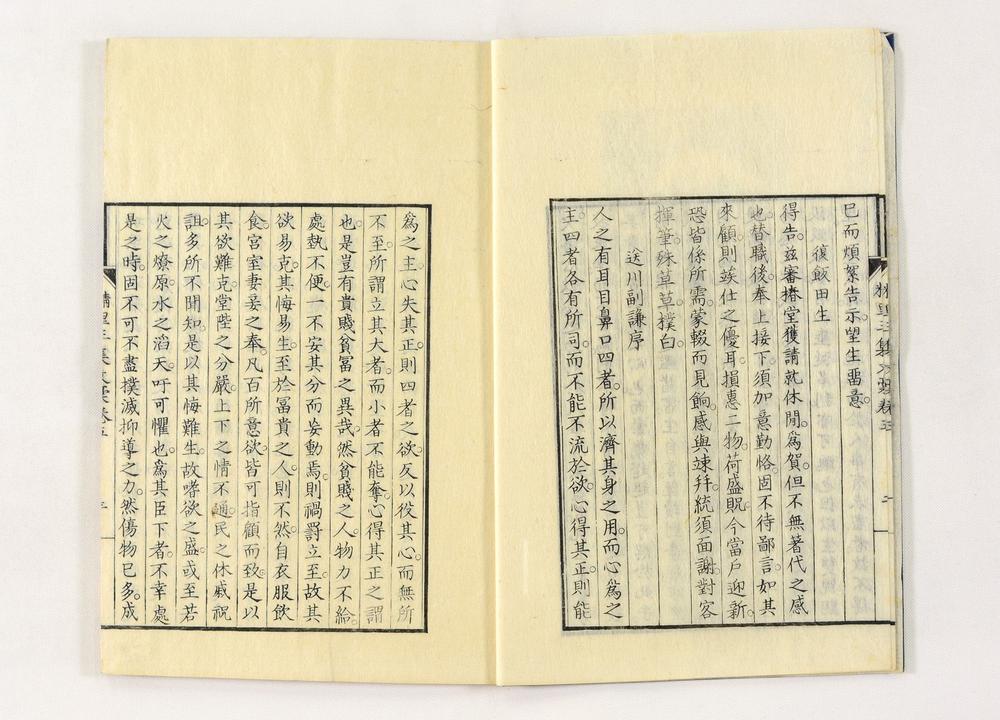 已而煩絮告示望生畱意
復飯田生
得告茲審揩堂獲請就休閒爲賀但不無著代之感
也替職後奉上接下須加意勤恪固不待鄙言如其
來顧則竢仕之優耳損惠二物荷盛貺今當戶迎新
恐皆係所需蒙輟而見餉感與竦拜統須面謝對客
揮筆殊草草撲白
送川副謙序
人之有耳目鼻口四者所以濟其身之用而心爲之
主四者各有所司而不能不流於欲心得其正則能
爲之主心失其正則四者之欲反以役其心而無所
不至所謂立其大者而小者不能奪心得其正之謂
也是豈有貴賤貧冨之異哉然貧賤之人物力不給
處執不便一不安其分而妄動焉則禍罸立至故其
欲易克其悔易生至於冨貴之人則不然自衣服飲
食宮室妻妾之奉凡百所意欲皆可指顧而致是以
其欲難克堂陛之分嚴上下之情不通民之休戚祝
詛多所不聞知是以其悔難生故嗜欲之盛或至若
火之燎原水之滔天吁可懼也爲其臣下者不幸處
是之時固不可不盡撲滅抑導之力然傷物已多成